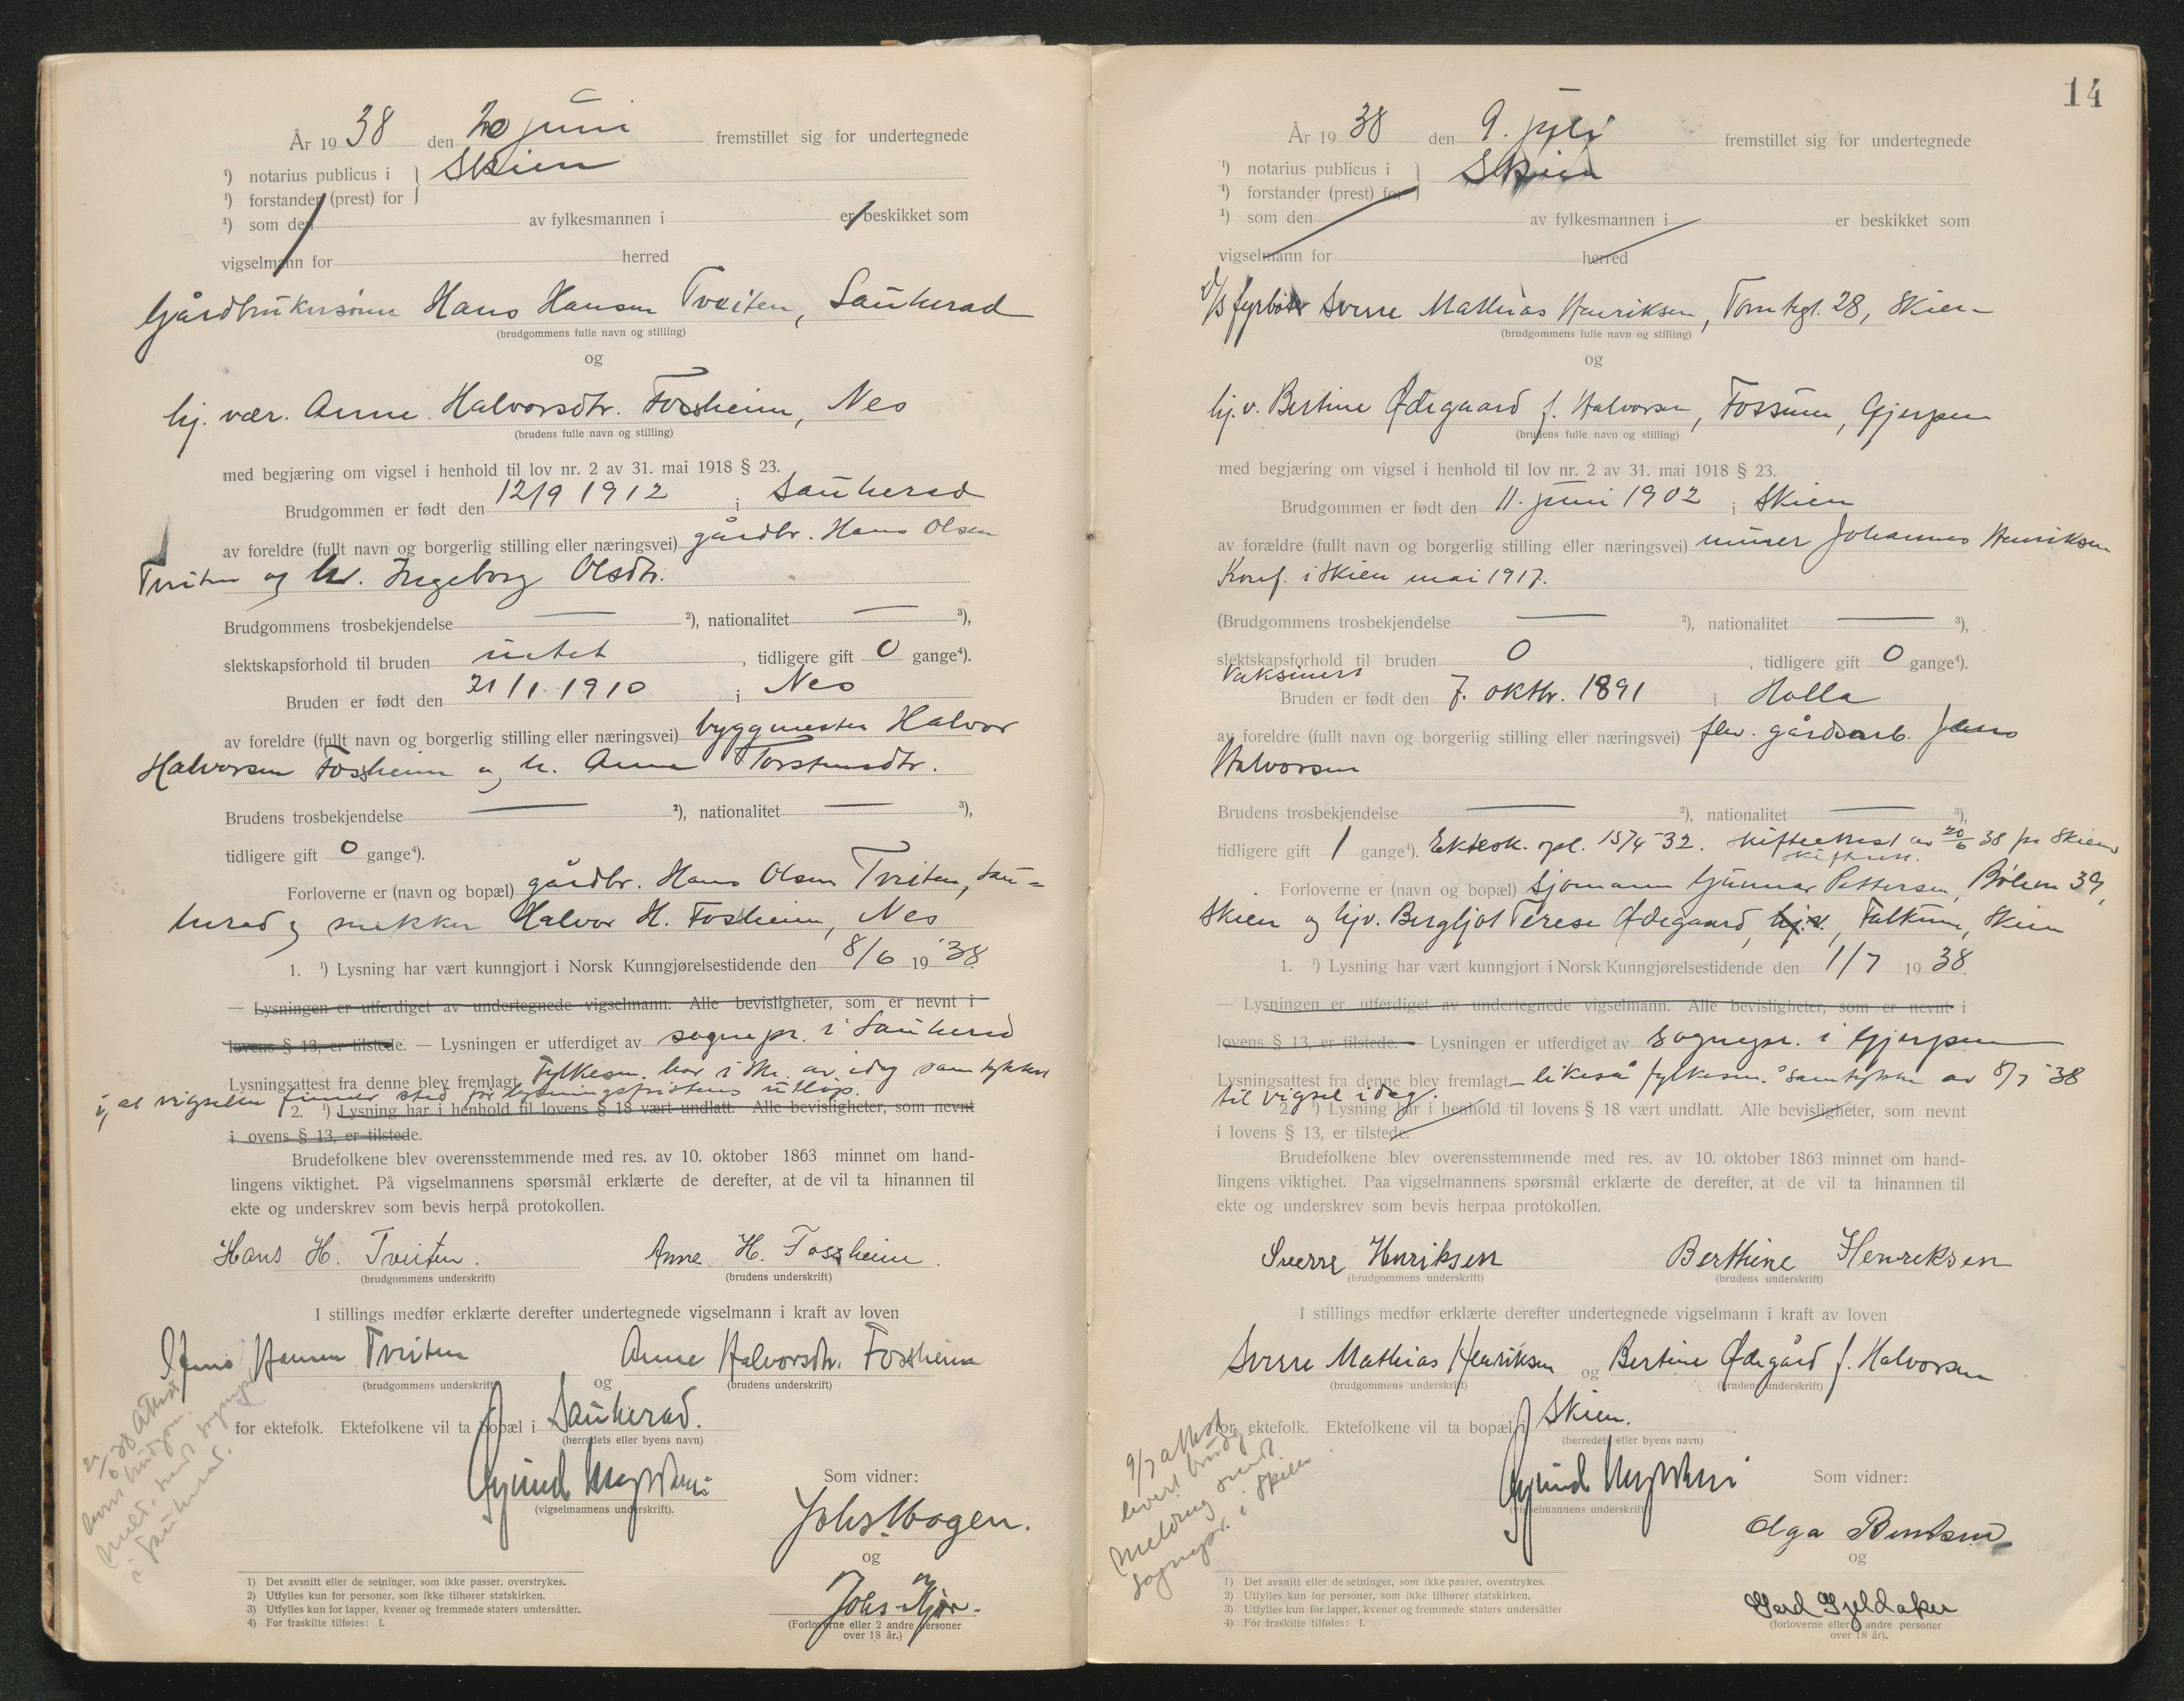 År 19 38 den 20 juni fremstillet sig for undertegnede
¹) notarius publicus i Skien
¹) forstander (prest) for
¹) som den av fylkesmannen i er beskikket som
vigselmann for herred
Gårdbrukersønn Hans Hansen Tveiten, Sauherad
(brudgommens fulle navn og stilling)
og
hj. vær. Anne Halvorsdtr. Fossheim, Nes
(brudens fulle navn og stilling)
med begjæring om vigsel i henhold til lov nr. 2 av 31. mai 1918 § 23.
Brudgommen er født den 12/9 1912 i Sauherad
av foreldre (fullt navn og borgerlig stilling eller næringsvei) gårdbr. Hans Olsen
Tveiten og h. Ingeborg Olsdtr.
Brudgommens trosbekjendelse — ²), nationalitet — ³),
slektskapsforhold til bruden intet, tidligere gift 0 gange⁴).
Bruden er født den 21/1 1910 i Nes
av foreldre (fullt navn og borgerlig stilling eller næringsvei) byggmester Halvor
Halvorsen Fossheim og h. Anne Torsteinsdtr.
Brudens trosbekjendelse — ²), nationalitet — ³),
tidligere gift 0 gange⁴).
Forloverne er (navn og bopæl) gårdbr. Hans Olsen Tveiten, Sau-
herad og snekker Halvor H. Fossheim, Nes
1. ¹) Lysning har vært kunngjort i Norsk Kunngjørelsestidende den 8/6 19 38
— Lysningen er utferdiget av undertegnede vigselmann. Alle bevisligheter, som er nevnt i
lovens § 13, er tilstede. — Lysningen er utferdiget av sognepr. i Sauherad
Lysningsattest fra denne blev fremlagt. Fylkesm. har i skr. av idag samtykket
i, at vigselen finner sted før lysningsfristens utløp.
2. ¹) Lysning har i henhold til lovens § 18 vært undlatt. Alle bevisligheter, som nevnt
i ovens § 13, er tilstede.
Brudefolkene blev overensstemmende med res. av 10. oktober 1863 minnet om hand-
lingens viktighet. På vigselmannens spørsmål erklærte de derefter, at de vil ta hinannen til
ekte og underskrev som bevis herpå protokollen.
Hans H. Tveiten. Anne H. Fossheim.
(brudgommens underskrift) (brudens underskrift)
I stillings medfør erklærte derefter undertegnede vigselmann i kraft av loven
Hans Hansen Tveiten og Anne Halvorsdtr. Fossheim
(brudgommens underskrift) (brudens underskrift)
for ektefolk. Ektefolkene vil ta bopæl i Sauherad.
(herredets eller byens navn)
(vigselmannens underskrift).
Som vidner:
Johs. Wogen.
og
Johs
(Forloverne eller 2 andre personer
over 18 år.)
21/6 38 attest
brudgom.
Meld. sendt sognepr.
i Sauherad.
1) Det avsnitt eller de setninger, som ikke passer, overstrykes.
2) Utfylles kun for personer, som ikke tilhører statskirken.
3) Utfylles kun for lapper, kvener og fremmede staters undersåtter.
4) For fraskilte tilføies: f.
14
År 19 38 den 9. juli fremstillet sig for undertegnede
¹) notarius publicus i Skien
¹) forstander (prest) for
¹) som den av fylkesmannen i er beskikket som
vigselmann for herred
d/s fyrbøter Sverre Mathias Henriksen, Torntegt. 28, Skien
(brudgommens fulle navn og stilling)
og
hj.v. Bertine Ødegaard f. Halvorsen, Fossum, Gjerpen
(brudens fulle navn og stilling)
med begjæring om vigsel i henhold til lov nr. 2 av 31. mai 1918 § 23.
Brudgommen er født den 11. juni 1902 i Skien
av forældre (fullt navn og borgerlig stilling eller næringsvei) murer Johannes Henriksen
Konf. i Skien mai 1917.
(Brudgommens trosbekjendelse — ²), nationalitet — ³),
slektskapsforhold til bruden 0, tidligere gift 0 gange⁴).
Vaksinert
Bruden er født den 7. oktbr. 1891 i Holla
av foreldre (fullt navn og borgerlig stilling eller næringsvei) flw. gårdsarb. Jens
Halvorsen
Brudens trosbekjendelse — ²), nationalitet — ³),
tidligere gift 1 gange⁴). Ektesk. opl. 15/4 32. Skifteattest av 20/6 38 fra Skiens
skifterett.
Forloverne er (navn og bopæl) Sjømann Gunnar Pettersen, Bølen 39,
Skien og hjv. Bergljot Terese Ødegaard, hj.v., Falkum, Skien
1. ¹) Lysning har vært kunngjort i Norsk Kunngjørelsestidende den 1/7 19 38.
— Lysningen er utferdiget av undertegnede vigselmann. Alle bevisligheter, som er nevnt i
lovens § 13, er tilstede. — Lysningen er utferdiget av sognepr. i Gjerpen
Lysningsattest fra denne blev fremlagt — likeså fylkesm.s samtykke av 8/7 38
til vigsel idag.
2. ¹) Lysning har i henhold til lovens § 18 vært undlatt. Alle bevisligheter, som nevnt
i lovens § 13, er tilstede.
Brudefolkene blev overensstemmende med res. av 10. oktober 1863 minnet om hand-
lingens viktighet. Paa vigselmannens spørsmål erklærte de derefter, at de vil ta hinannen til
ekte og underskrev som bevis herpaa protokollen.
Sverre Henriksen Berthine Henreksen
(brudgommens underskrift) (brudens underskrift)
I stillings medfør erklærte derefter undertegnede vigselmann i kraft av loven
Sverre Mathias Henriksen og Bertine Ødegård f. Halvorsen
(brudgommens underskrift) (brudens underskrift)
for ektefolk. Ektefolkene vil ta bopæl i Skien.
(herredets eller byens navn)
(vigselmannens underskrift)
Som vidner:
Olga Berntsen
og
Gerd Gjeldaker
(forloverne eller 2 andre personer
over 18 år).
9/7 attest
levert brudg.
Melding sendt
sognepr. i Skien
1) Det avsnitt eller de setninger, som ikke passer, overstrykes.
2) Utfylles kun for personer, som ikke tilhører statskirken.
3) Utfylles kun for lapper, kvener og fremmede staters undersåtter
4) For fraskilte tilføies: f.